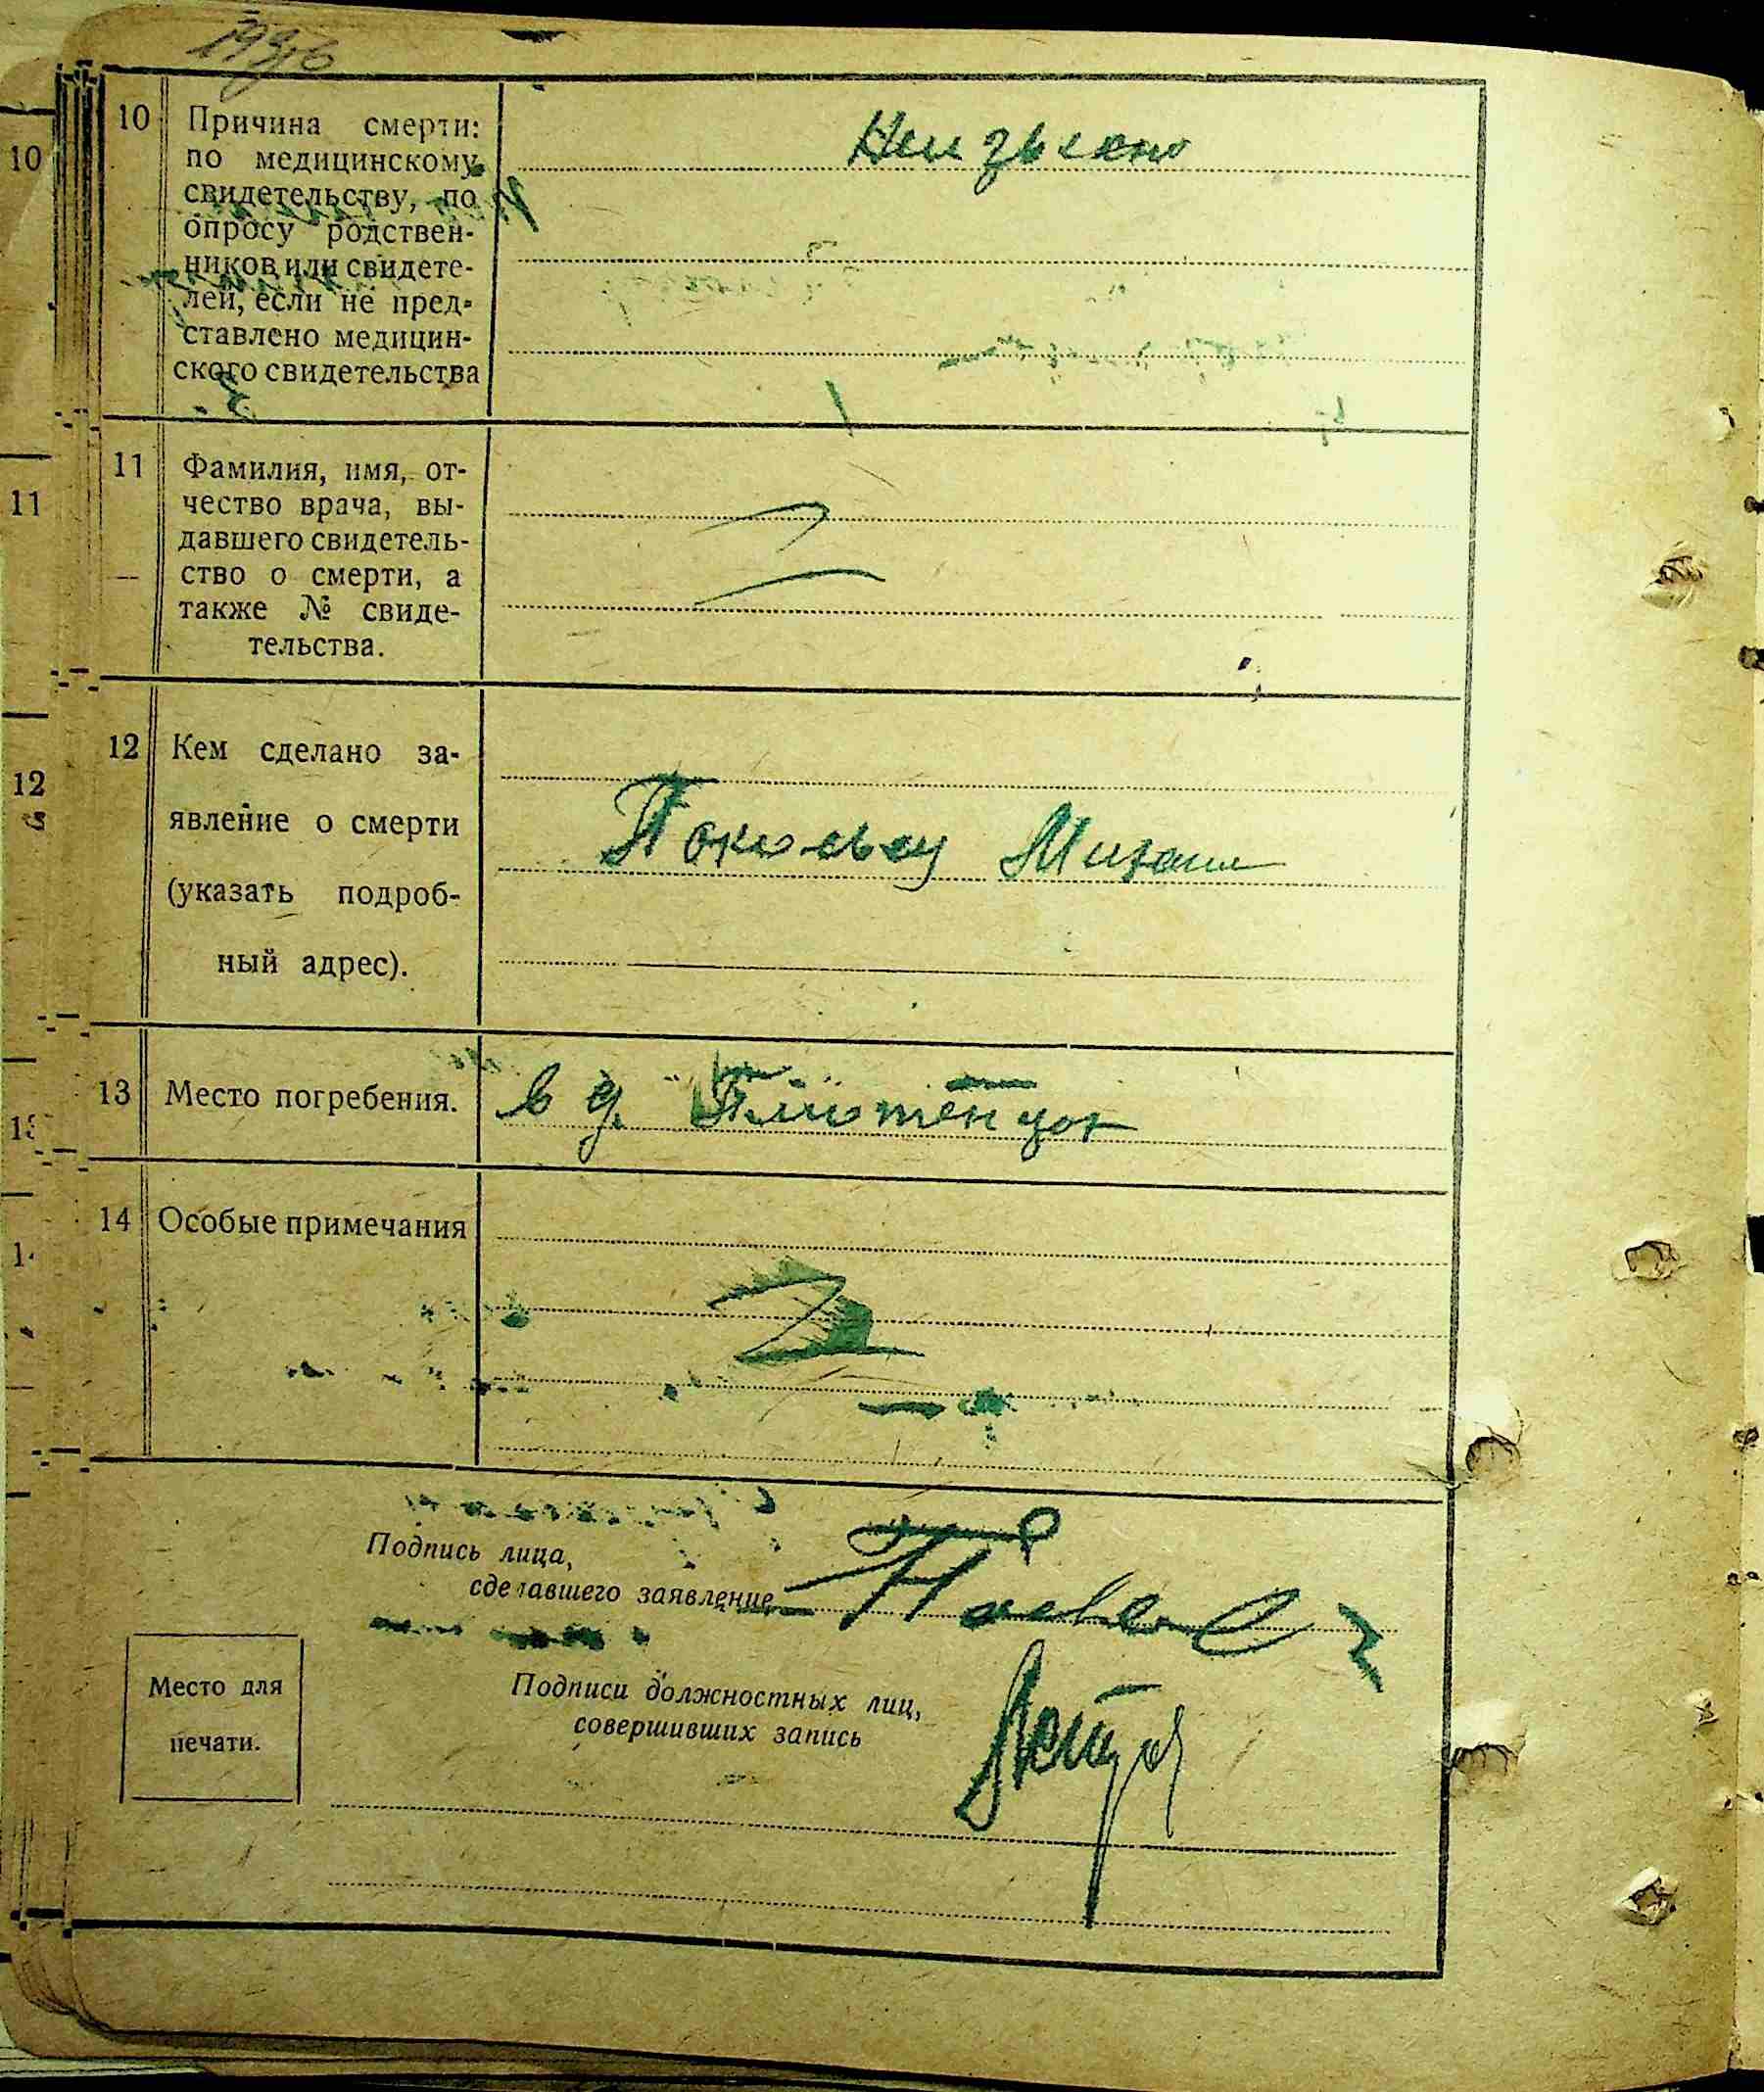 10
10 Причина смерти: Неизвесно
по медицинскому
свидетельству, по
опросу родствен-
ников или свидете-
лей, если не пред-
ставлено медицин-
ского свидетельства
11
11 Фамилия, имя, от-
чество врача, вы-
давшего свидетель-
ство о смерти, а
также № свиде-
тельства.
12
12 Кем сделано за-
явление о смерти
Михаил
(указать подроб-
ный адрес).
13 Место погребения. в д.
14 Особые примечания
Подпись лица,
сделавшего заявление
Подписи должностных лиц,
совершивших запись
Место для
печати.